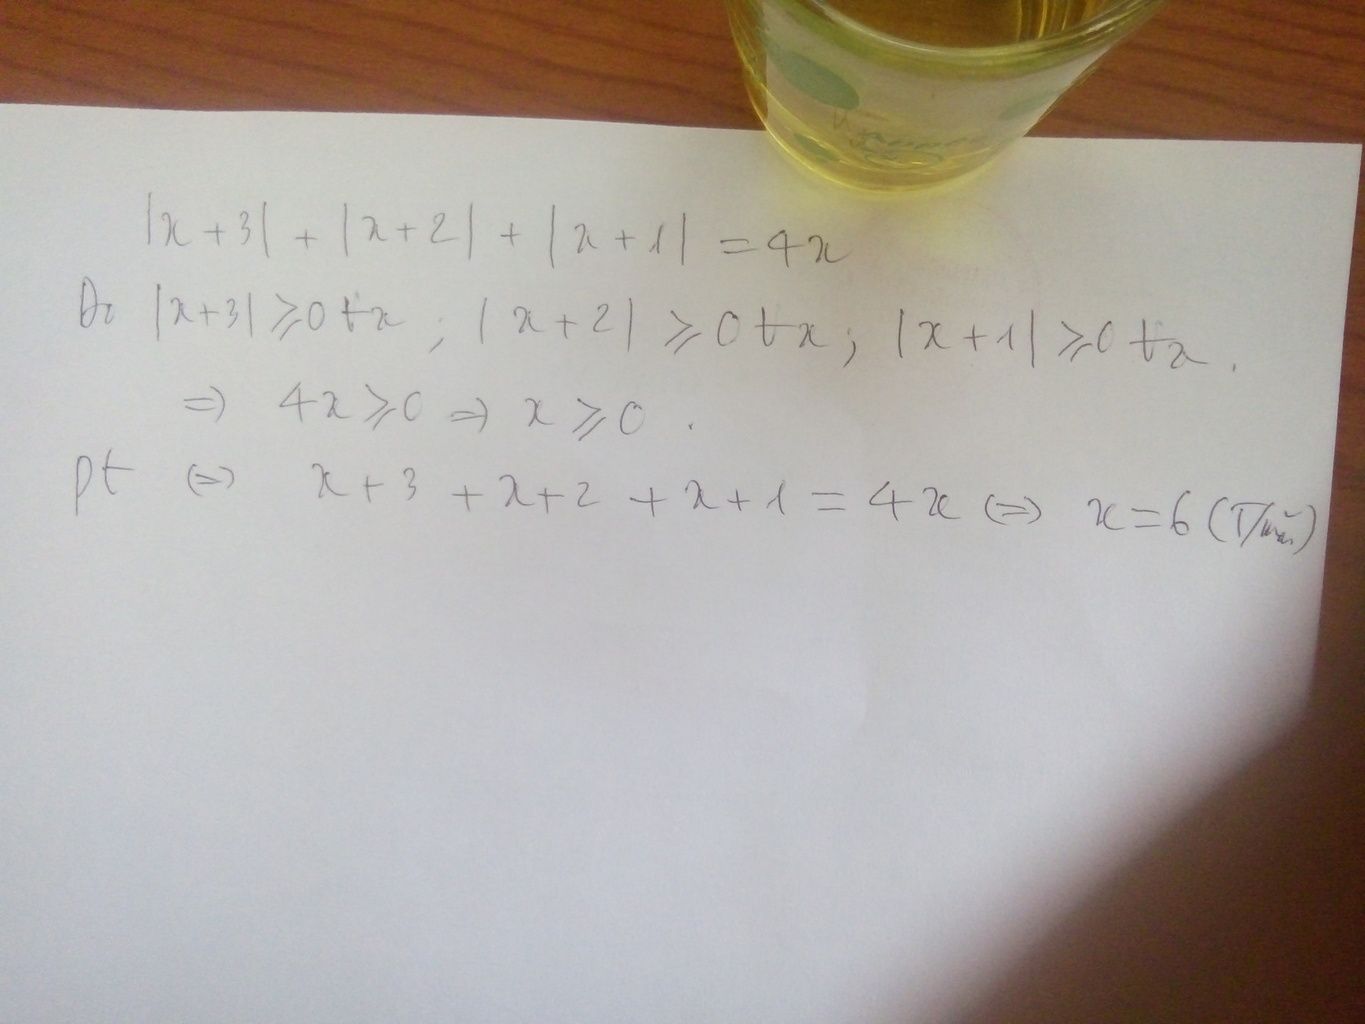 |x+3| + |x+2| + |x+1| = 4x
Do |x+3| ⩾0 ∀x ; |x+2| ⩾0 ∀x ; |x+1| ⩾0 ∀x .
=> 4x⩾0 => x⩾0 .
pt <=> x+3 + x+2 + x+1 = 4x <=> x=6 (T/mãn)